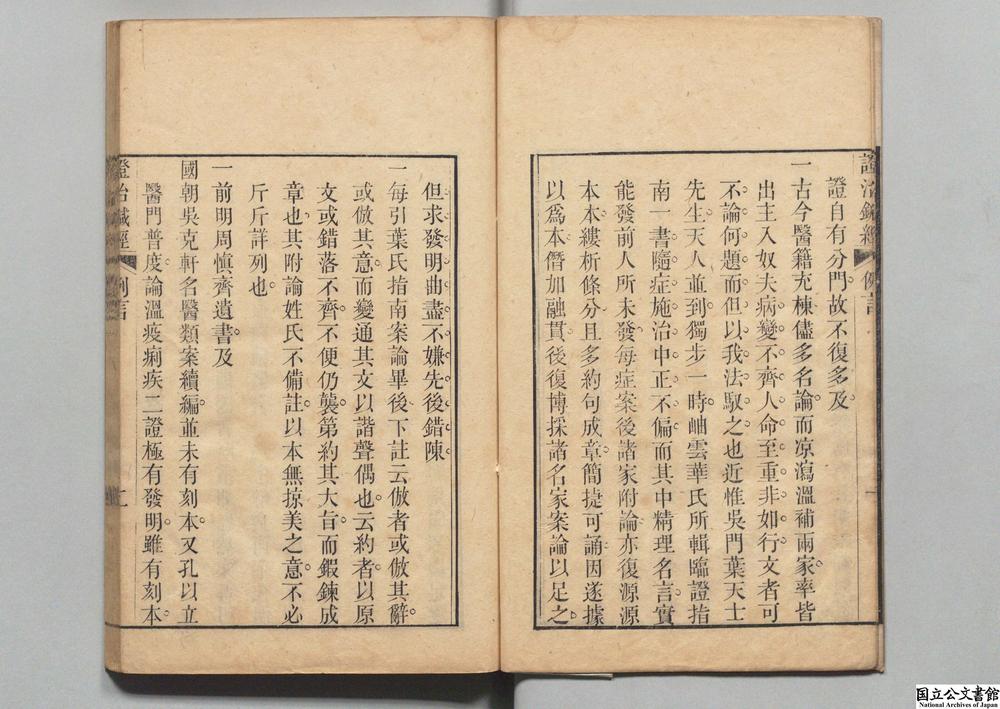 證治鍼經
例言
證自有分門故不復多及
一古今醫籍充棟儘多名論而凉瀉溫補兩家率皆
出主入奴夫病變不齊人命至重非如行文者可
不論何題而但以我法馭之也近惟吳門葉天士
先生天人並到獨步一時岫雲華氏所輯臨證指
南一書隨症施治中正不偏而其中精理名言實
能發前人所未發每症案後諸家附論亦復源源
本本縷析條分且多約句成章簡捷可誦因遂據
以爲本僭加融貫後復博採諸名家案論以足之
但求發明曲盡不嫌先後錯陳
一每引葉氏指南案論畢後下註云倣者或倣其辭
或倣其意而變通其文以諧聲偶也云約者以原
文或錯落不齊不便仍襲第約其大旨而鍜鍊成
章也其附論姓氏不備註以本無掠美之意不必
斤斤詳列也
一前明周慎齊遺書及
國朝吳克軒名醫類案續編並未有刻本又孔以立
醫門普度論溫疫痢疾二證極有發明雖有刻本
證治鍼經
例言
二
国立公文書館
National Archives of Japan